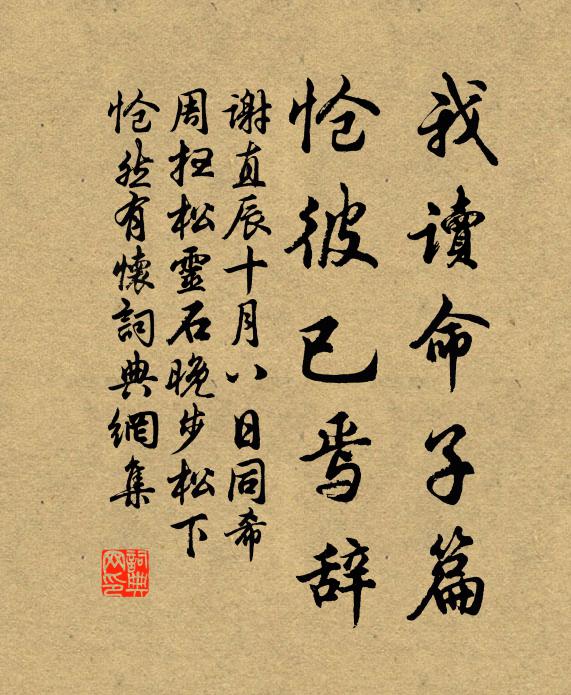 我读命子篇
怆彼已焉辞
谢直辰十月八日同希
周扫松灵石晚步松下
怆然有懷詞典網集
詞典网印